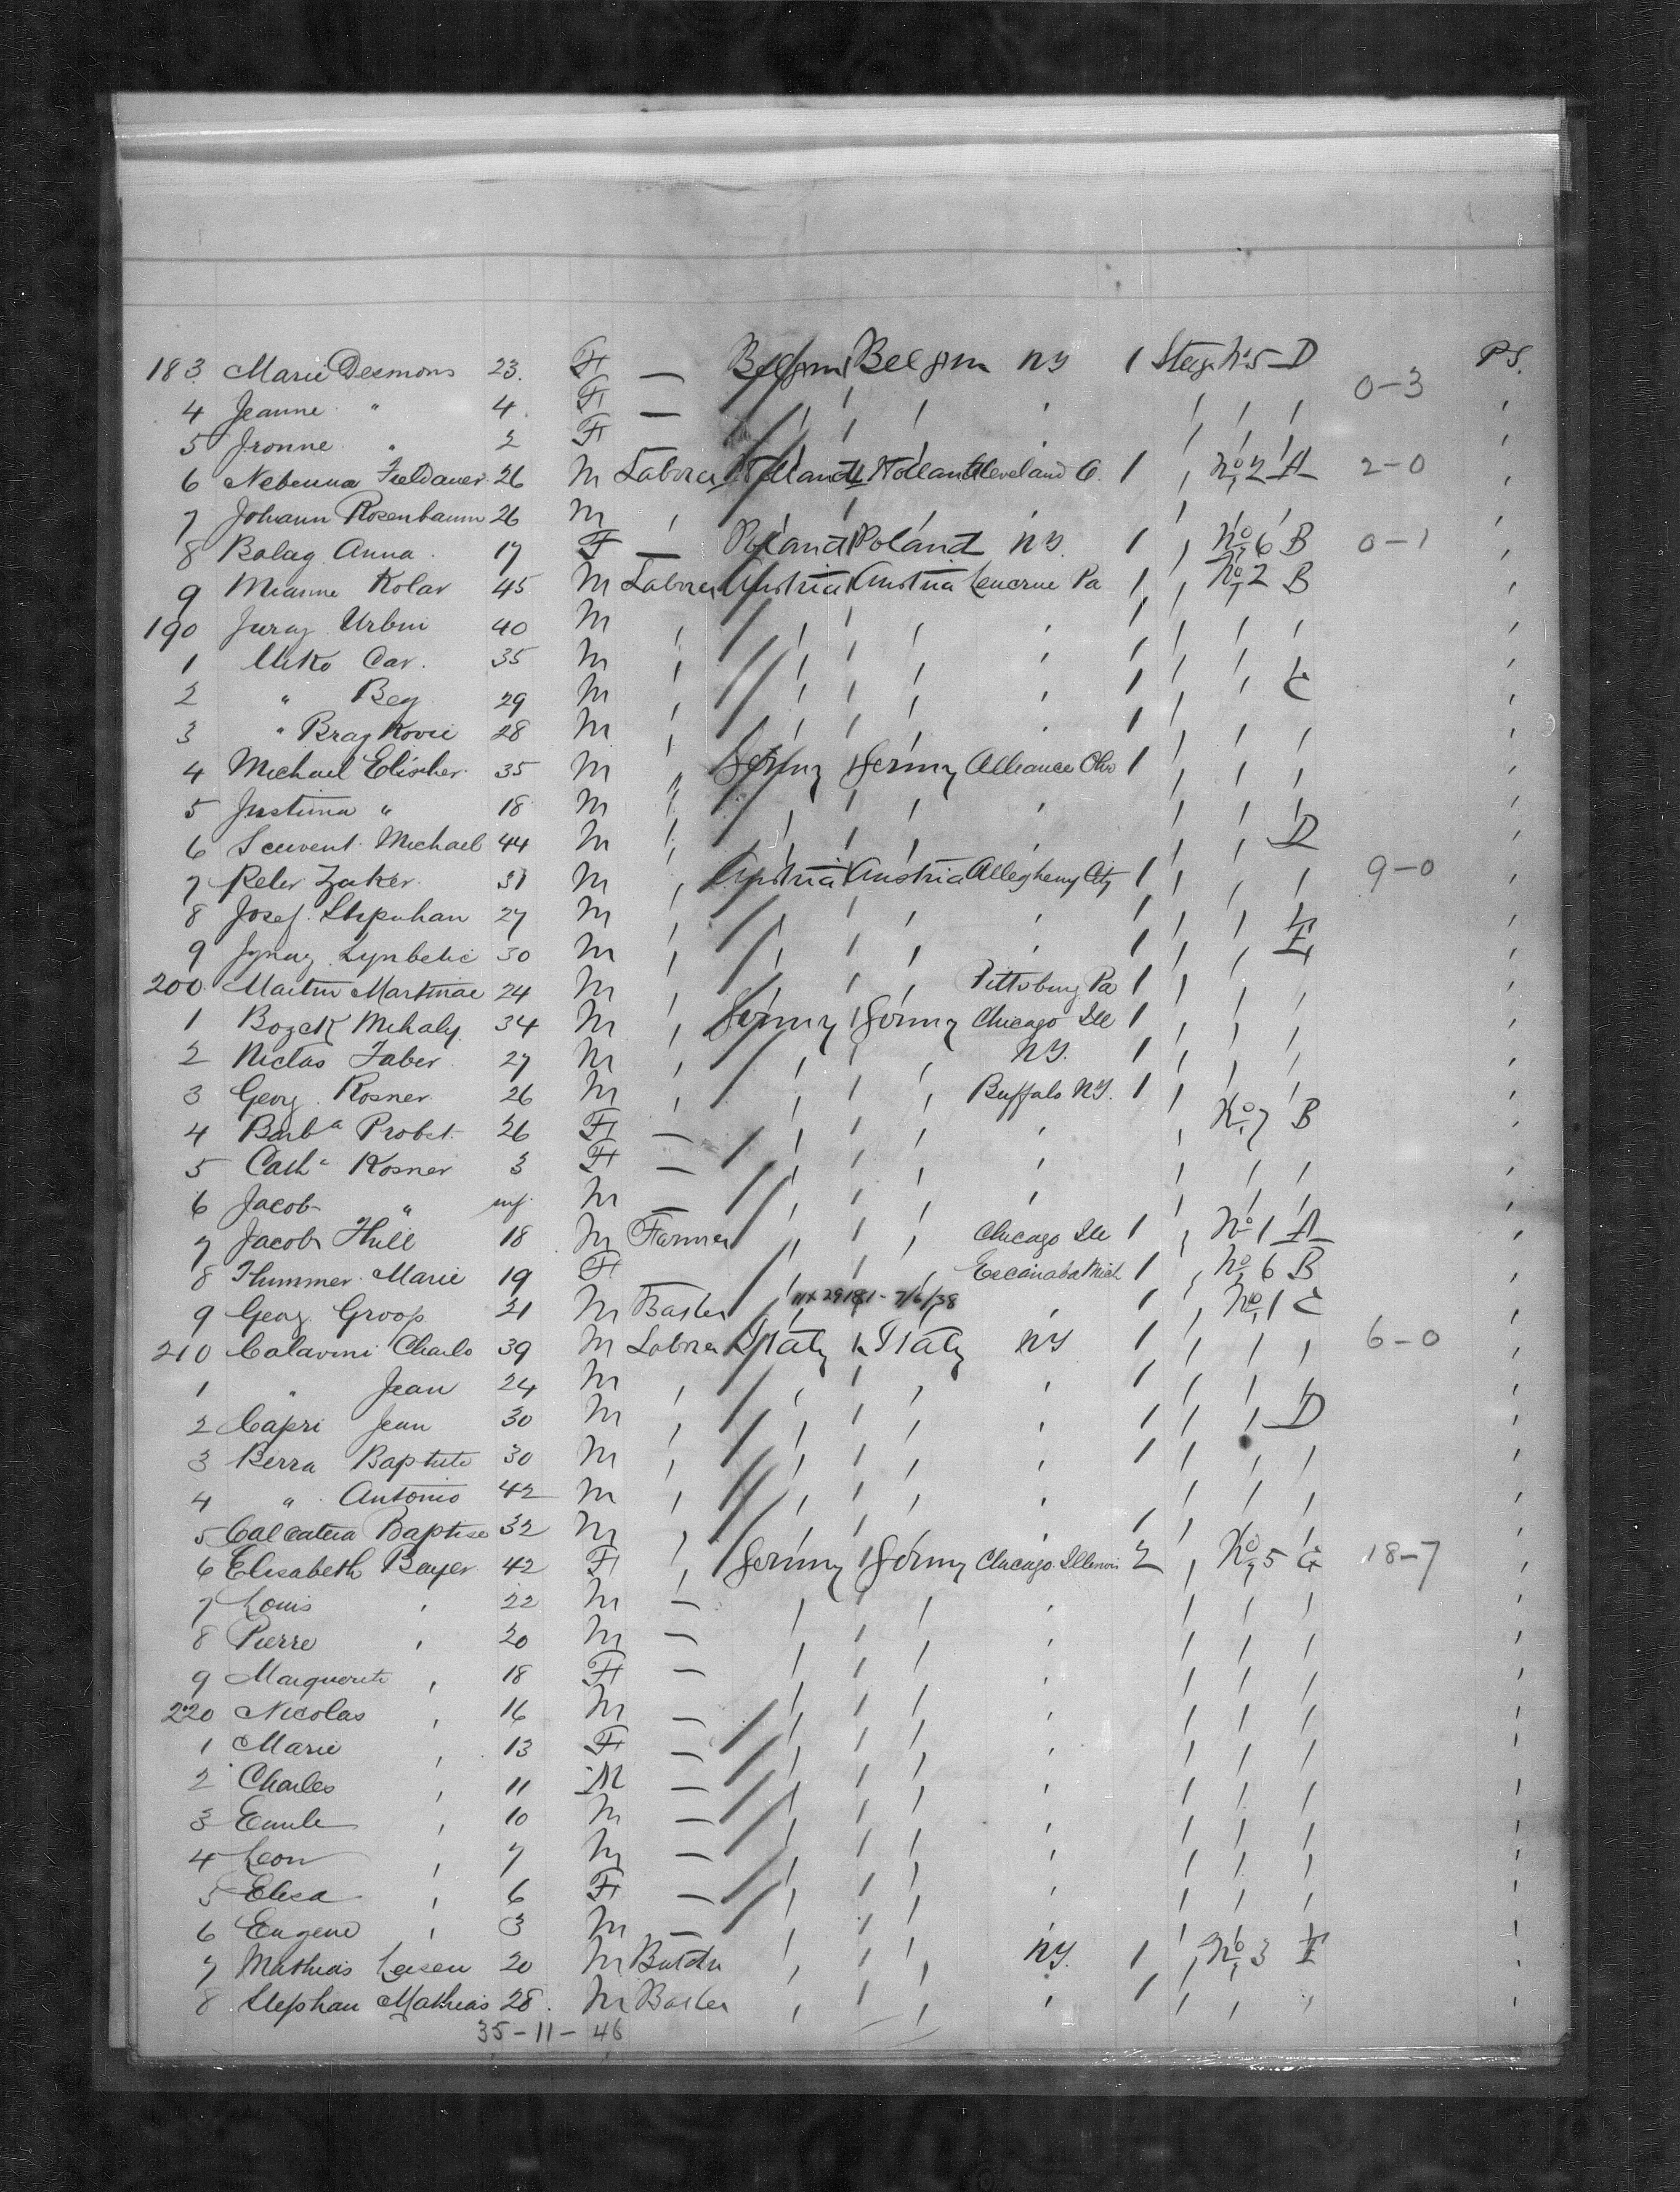 183 Marie Desmons 23. F — Belgium Belgium NY 1 Steeg. No 5 D P.S.
0-3
4 Jeanne " 4 F —
5 Jronne " 2 F —
6 26 M Laborer Holland Holland Cleveland O. 1 No 2 A 2-0
7 Johann Rosenbaum 26 M
8 Balag Anna 17 F — Poland Poland NY. 1 No 6 B 0-1
9 Kolar 45 M Laborer Austria Austria Pa 1 No 2 B
190 Juraj Urbin 40 M
1 Miko Car. 35 M
2 " Beg 29 M C
3 " Brajkovic 28 M
4 Michael Elischer 35 M Germny Germny Alliance Ohio 1
5 Justina " 18 M
6 Michael 44 M D
7 Peter Zaker 31 M Austria Austria Allegheny City 1 9-0
8 Josef 27 M E
9 Ignaz 30 M
200 Martin Martinac 24 M Pittsburg Pa 1
1 Bozek Mihaly 34 M Germny Germny Chicago Ill 1
2 Niclas Faber 27 M NY. 1
3 Georg Rosner 26 M Buffalo NY. 1
4 Barba Probst 26 F — No 7 B
5 Catha Rosner 3 F —
6 Jacob " inf M —
7 Jacob Hill 18 M Farmer Chicago Ill 1 No 1 A
8 Thummer Marie 19 F Escanaba Mich 1 No 6 B
9 Georg Groop 21 M 11x29181-7/6/38 1 No 1 C
210 Calavini Charles 39 M Laborer Italy Italy NY 1 6-0
1 " Jean 24 M 1
2 Capri Jean 30 M 1 D
3 Berra Baptiste 30 M 1
4 " Antonio 42 M
5 Calcatera Baptise 32 M 1
6 Elisabeth Bayer 42 F Germny Germny Chicago Illinois 2 No 5 G 18-7
7 Louis 22 M —
8 Pierre 20 M —
9 Marguerite 18 F —
220 Nicolas 16 M —
1 Marie 13 F —
2 Charles 11 M —
3 Emile 10 M —
4 Leon 7 M —
5 Elisa 6 F —
6 Eugene 3 M —
7 Mathias Leisen 20 M Butcher NY. 1 No 3 E
8 Stephan Mathias 28. M 1
35-11-46